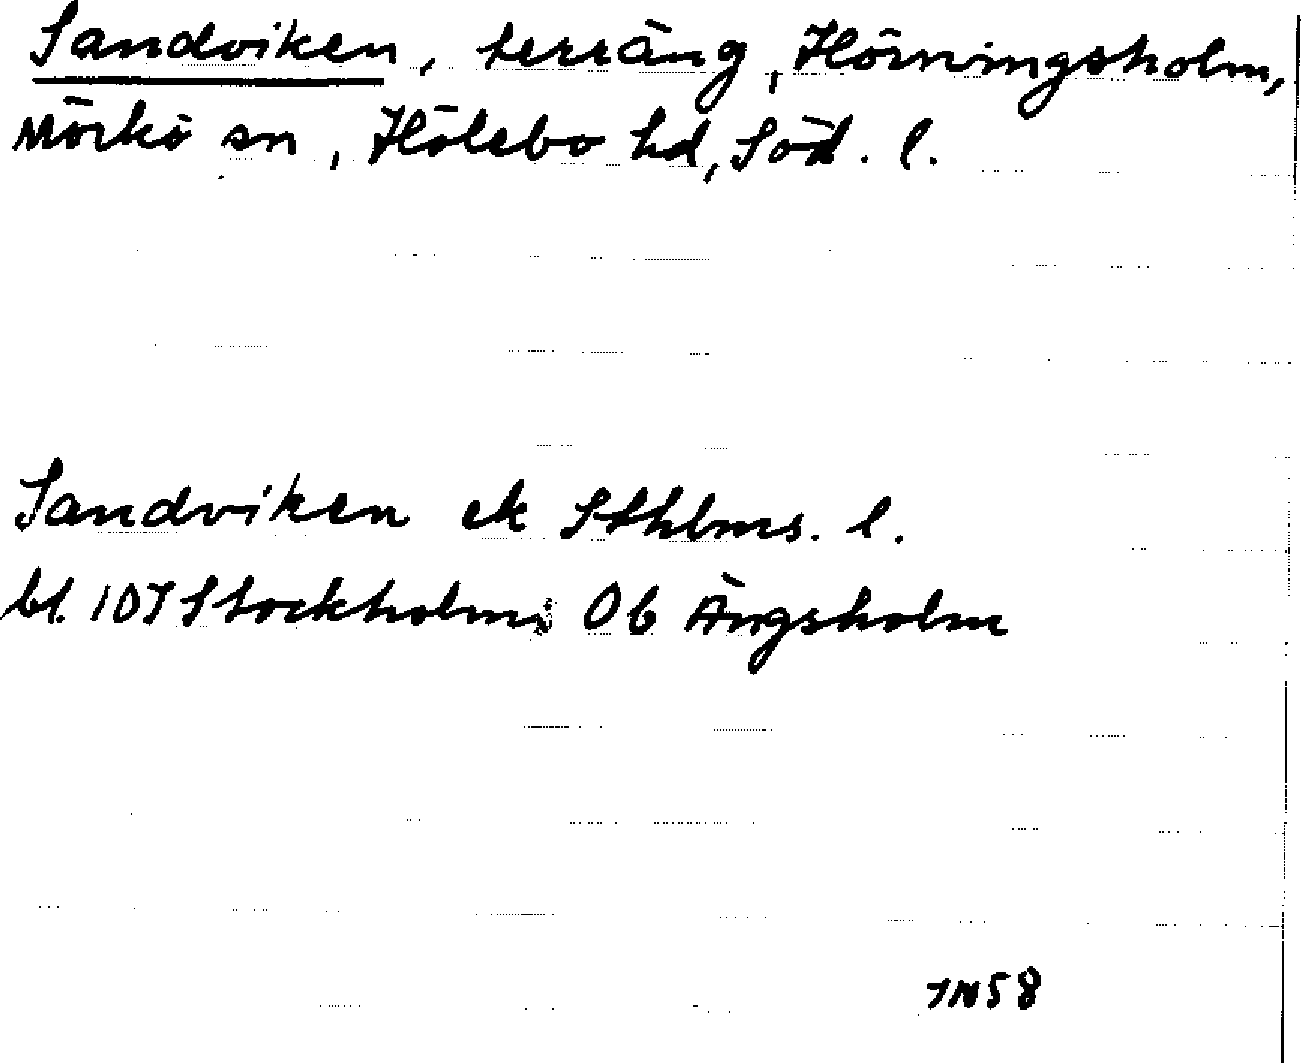 Sandviken, terräng, Hörningsholm,
Mörkö sn, Hölebo hd, Söd. l.
Sandviken ek Sthlms. l.
bl. 107 Stockholm; Ob Ängsholm
JN58